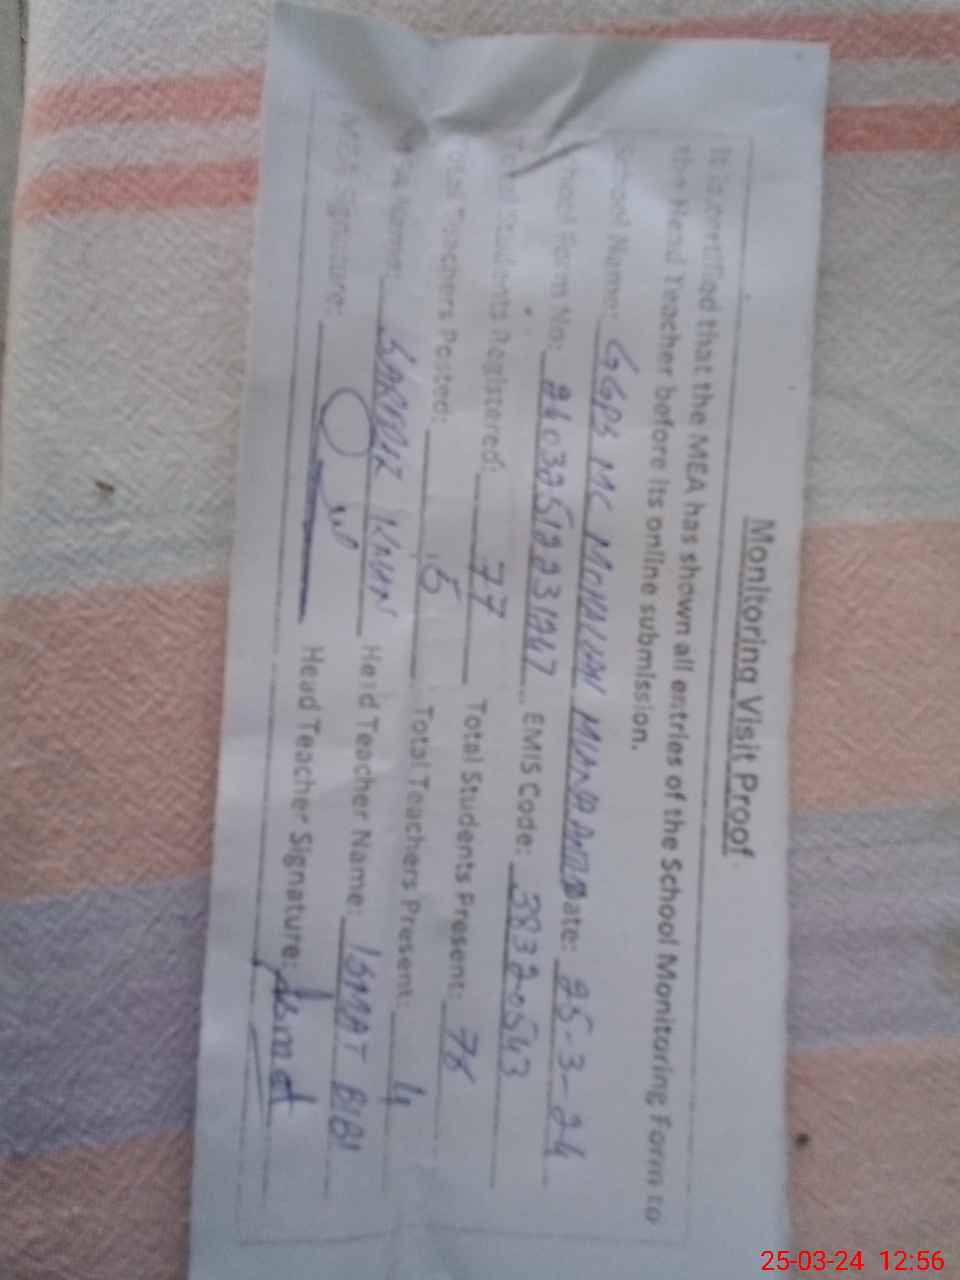 Monitoring Visit Proof
It is certified that the MEA has shown all entries of the School Monitoring Form to
the Head Teacher before its online submission.
School Name: GGPS MC Date: 25-3-24
School Form No: EMIS Code: 38320543
Total Students Registered: 77 Total Students Present: 76
Total Teachers Posted: 5 Total Teachers Present: 4
MEA Name: KHAN Head Teacher Name: ISMAT BIBI
MEA Signature: Head Teacher Signature: Ismat
25-03-24 12:56